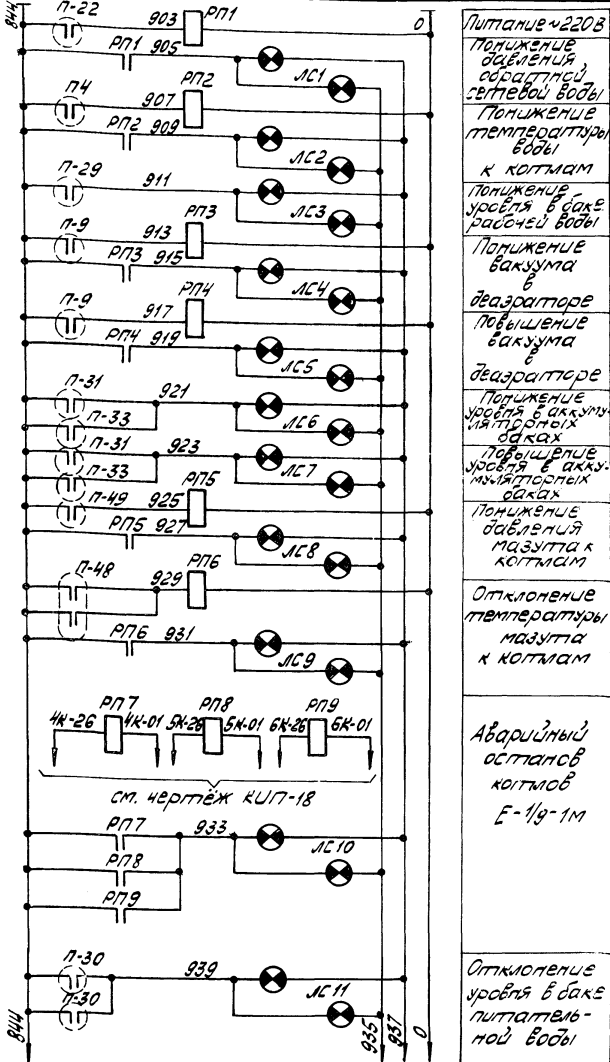 844
П-22
903
РП1
0
РП1
905
ЛС1
П4
907
РП2
РП2
909
ЛС2
П-29
911
ЛС3
П-9
913
РП3
РП3
915
ЛС4
П-9
917
РП4
РП4
919
ЛС5
П-31
921
П-33
ЛС6
П-31
923
П-33
ЛС7
П-49
925
РП5
РП5
927
ЛС8
П-48
929
РП6
РП6
931
ЛС9
РП7
РП8
РП9
4К-26
4К-01
5К-26
5К-01
6К-26
6К-01
см. чертёж КИП-18
РП7
933
ЛС10
РП8
РП9
П-30
939
П-30
ЛС11
844
935
937
0
Питание ~220В
Понижение
давления
обратной
сетевой воды
Понижение
температуры
воды
к котлам
Понижение
уровня в баке
рабочей воды
Понижение
вакуума
в
деаэраторе
Повышение
вакуума
в
деаэраторе
Понижение
уровня в аккуму-
ляторных
баках
Повышение
уровня в акку-
муляторных
баках
Понижение
давления
мазута к
котлам
Отклонение
температуры
мазута
к котлам
Аварийный
останов
котлов
Е-1/9-1М
Отклонение
уровня в баке
питатель-
ной воды